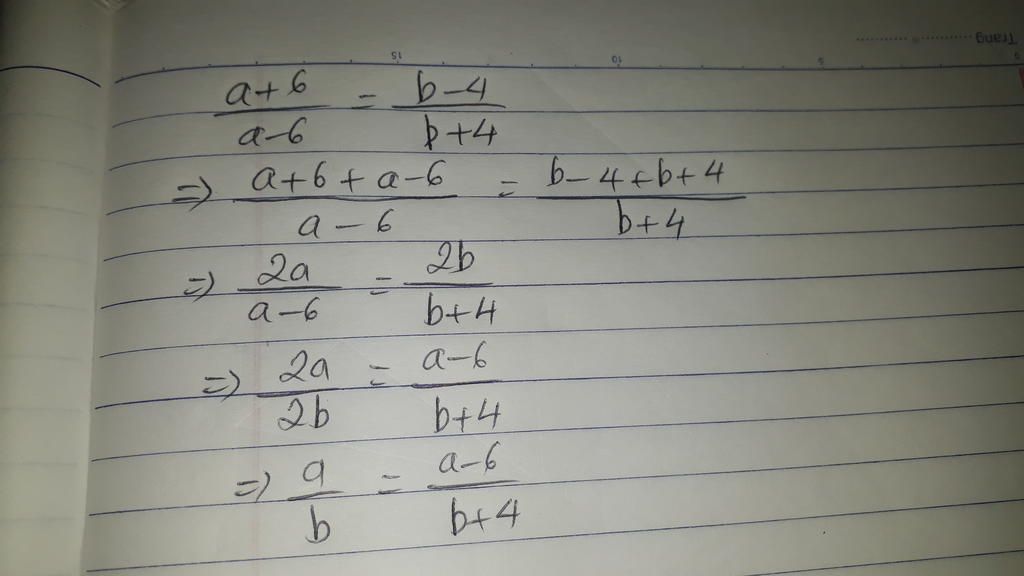 Trang
15 10 5
\frac{a+6}{a-6} = \frac{b-4}{b+4}
=> \frac{a+6+a-6}{a-6} = \frac{b-4+b+4}{b+4}
=> \frac{2a}{a-6} = \frac{2b}{b+4}
=> \frac{2a}{2b} = \frac{a-6}{b+4}
=> \frac{a}{b} = \frac{a-6}{b+4}